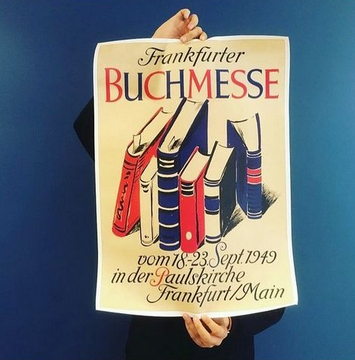 Frankfurter
BUCHMESSE
vom 18.-23. Sept. 1949
in der Paulskirche
Frankfurt/Main